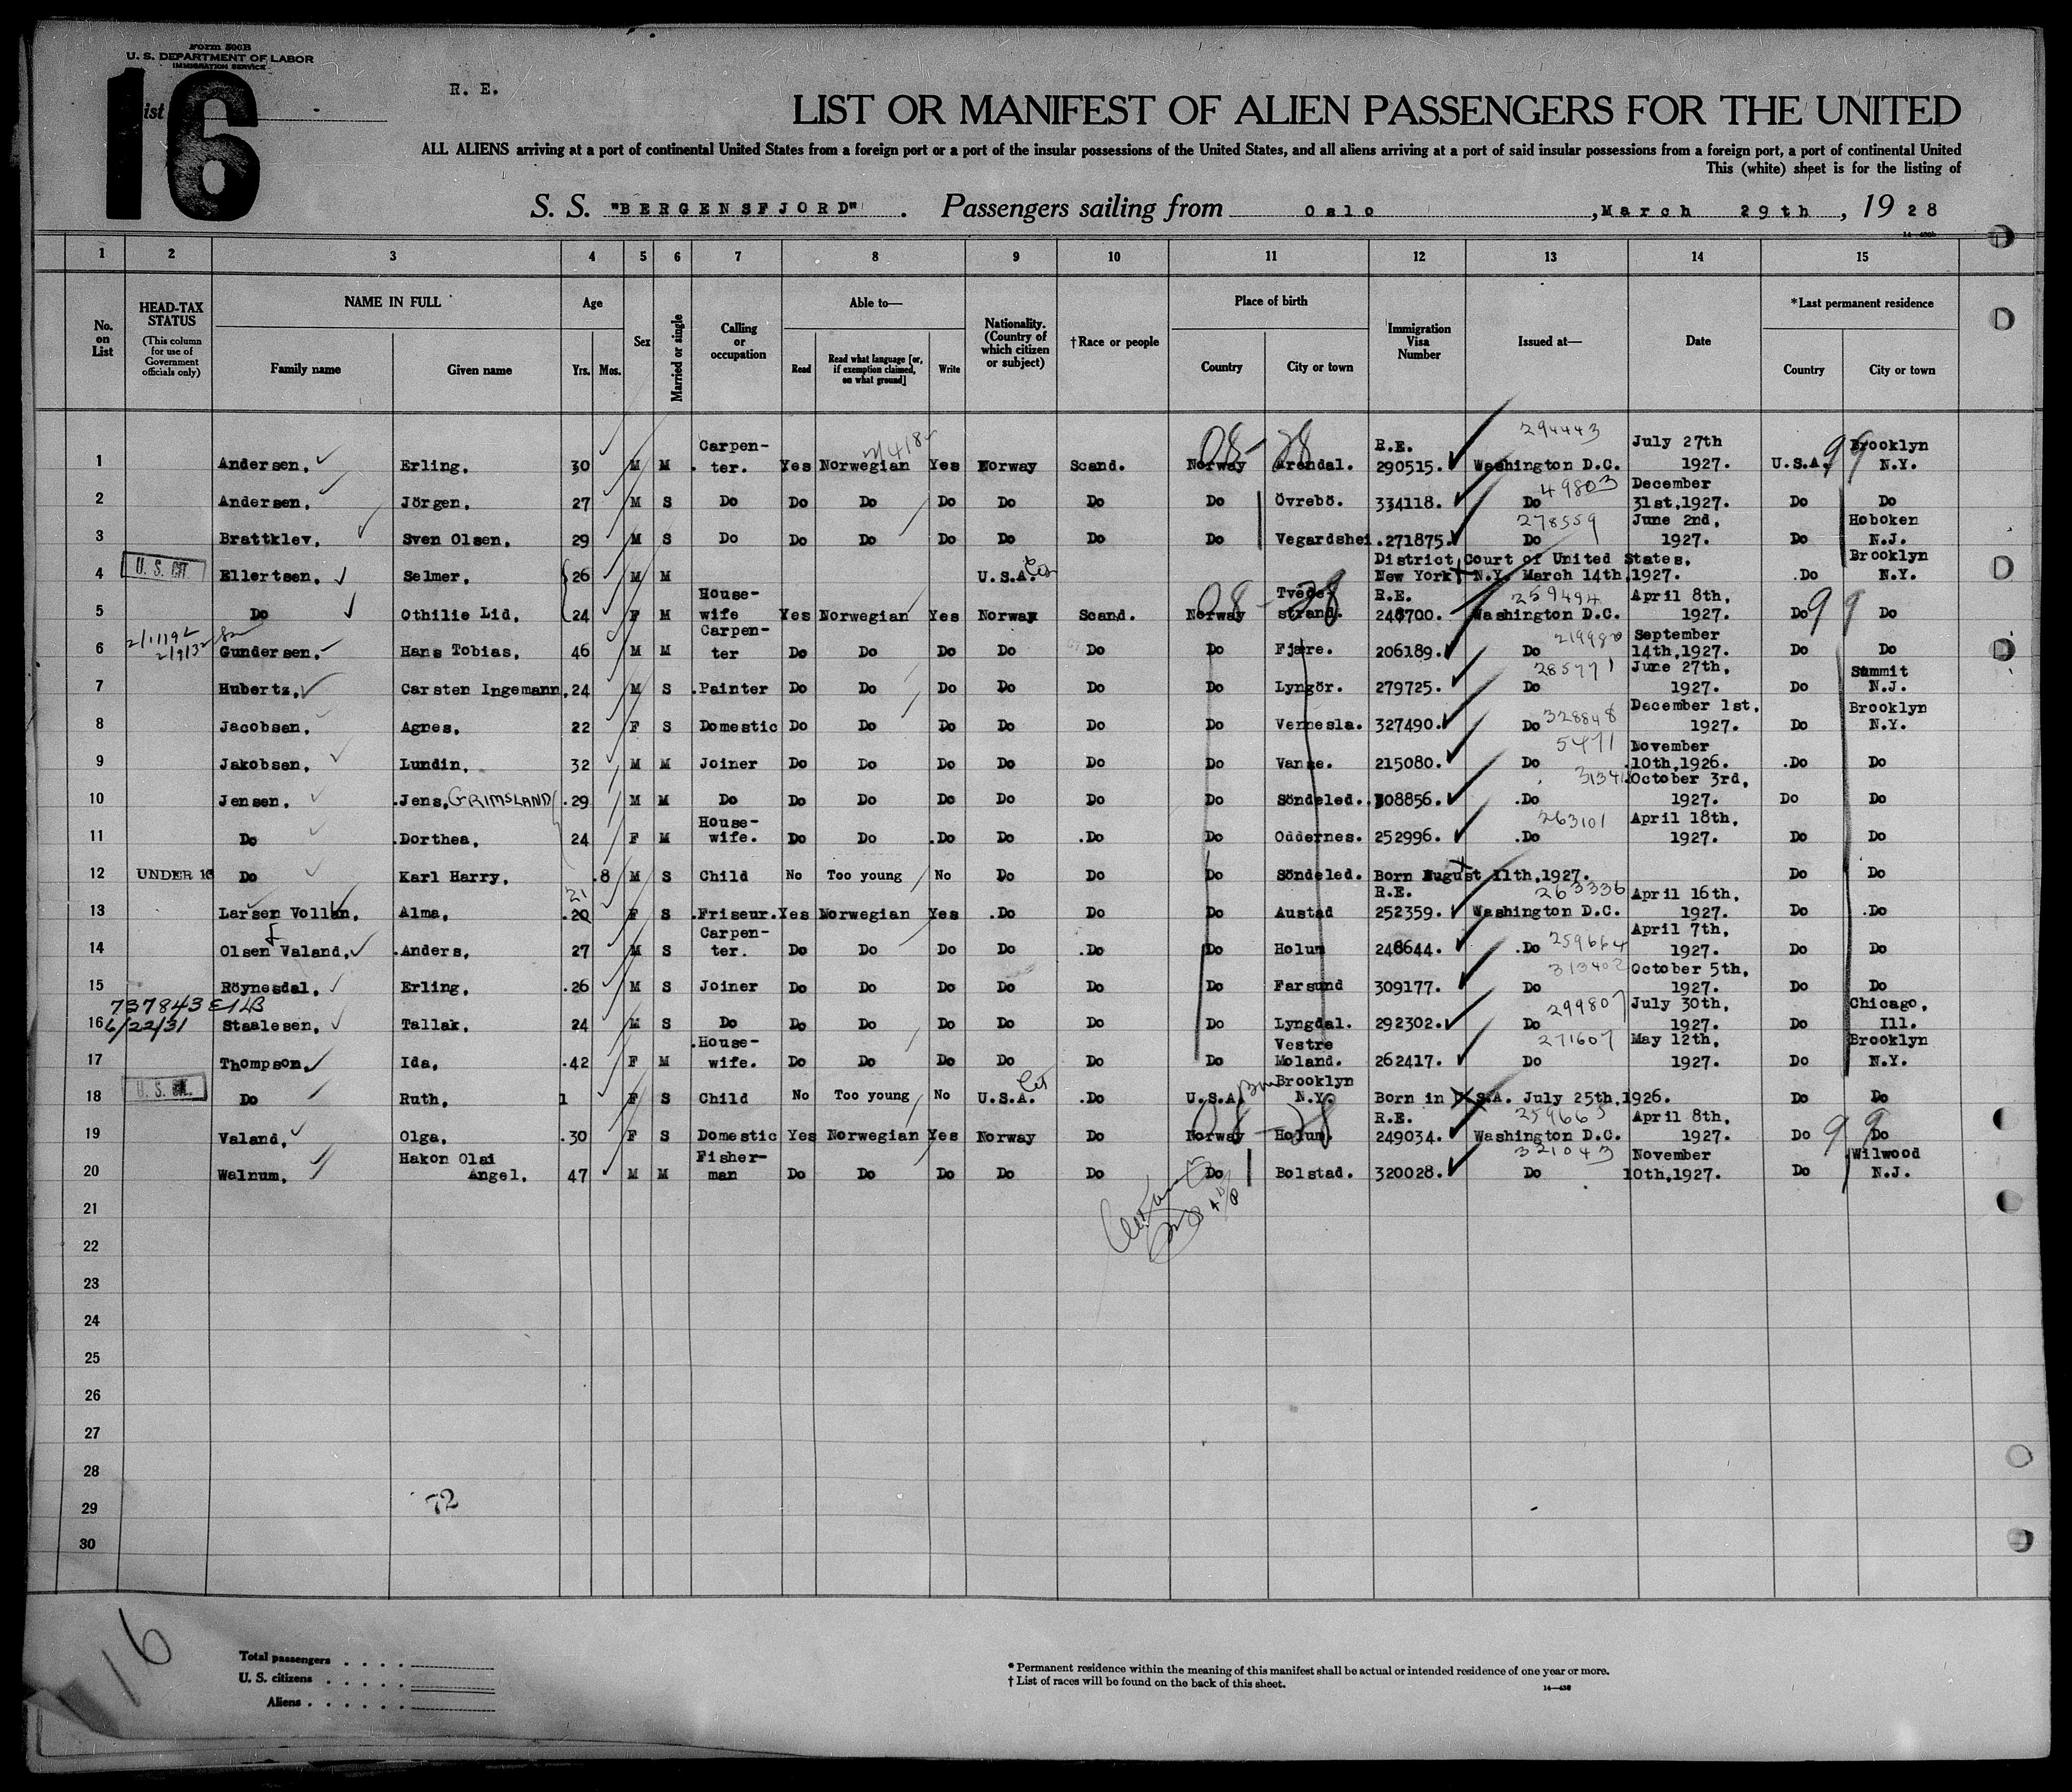 Form 500B
U. S. DEPARTMENT OF LABOR
IMMIGRATION SERVICE
List 16
R. E.
LIST OR MANIFEST OF ALIEN PASSENGERS FOR THE UNITED
ALL ALIENS arriving at a port of continental United States from a foreign port or a port of the insular possessions of the United States, and all aliens arriving at a port of said insular possessions from a foreign port, a port of continental United
This (white) sheet is for the listing of
S. S. "BERGENSFJORD" . Passengers sailing from Oslo , March 29th , 19 28
1 2 3 4 5 6 7 8 9 10 11 12 13 14 15
No. on List
HEAD-TAX STATUS
(This column for use of Government officials only)
NAME IN FULL
Family name Given name
Age
Yrs. Mos.
Sex
Married or single
Calling or occupation
Able to—
Read Read what language [or, if exemption claimed, on what ground] Write
Nationality. (Country of which citizen or subject)
†Race or people
Place of birth
Country City or town
Immigration Visa Number
Issued at—
Date
*Last permanent residence
Country City or town
1 Andersen. Erling. 30 M M Carpen-ter. Yes Norwegian Yes Norway Scand. Norway Arendal. R.E. 290515. Washington D.C. 294443 July 27th 1927. U.S.A. Brooklyn N.Y.
08-28 99
2 Andersen. Jörgen. 27 M S Do Do Do Do Do Do Do Övrebö. 334118. Do 49803 December 31st,1927. Do Do
3 Brattklev. Sven Olsen. 29 M S Do Do Do Do Do Do Do Vegardshei .271875. Do 278559 June 2nd, 1927. Do Hoboken N.J.
4 U. S. CIT. Ellertsen. Selmer. 26 M M U.S.A. District Court of United States. New York N.Y. March 14th,1927. .Do Brooklyn N.Y.
5 Do Othilie Lid. 24 F M House-wife Yes Norwegian Yes Norway Scand. Norway Tvede-strand. R.E. 248700. Washington D.C. 259494 April 8th, 1927. Do Do
08-28 99
6 Gundersen. Hans Tobias. 46 M M Carpen-ter Do Do Do Do Do Do Fjære. 206189. Do September 14th,1927. Do Do
7 Hubertz. Carsten Ingemann. 24 M S .Painter Do Do Do Do Do Do Lyngör. 279725. Do 285771 June 27th, 1927. Do Summit N.J.
8 Jacobsen. Agnes. 22 F S Domestic Do Do Do Do Do Do Vennesla. 327490. Do 328848 December 1st, 1927. Do Brooklyn N.Y.
9 Jakobsen. Lundin. 32 M M Joiner Do Do Do Do Do Do Vanse. 215080. Do 5471 November 10th,1926. .Do Do
10 Jensen. .Jens. GRIMSLAND .29 M M Do Do Do Do Do Do Do Söndeled. 308856. .Do October 3rd, 1927. Do Do
11 Do .Dorthea. 24 F M House-wife. Do Do .Do Do .Do Do Oddernes. 252996. .Do 263101 April 18th, 1927. Do Do
12 UNDER 16 Do Karl Harry. .8 M S Child No Too young No Do Do Do Söndeled. Born August 11th,1927. Do Do
13 Larsen Vollan. Alma. 21 .20 F S .Friseur. Yes Norwegian Yes .Do Do Do Austad R.E. 252359. Washington D.C. 263336 April 16th, 1927. Do .Do
14 Olsen Valand. .Anders. 27 M S Carpen-ter. Do Do Do Do .Do Do Holum 248644. .Do 259664 April 7th, 1927. Do Do
15 Röynesdal. Erling. .26 M S Joiner Do Do Do Do Do Do Farsund 309177. Do 313402 October 5th, 1927. Do Do
737843
16 6/22/31 Staalesen. Tallak. 24 M S Do Do Do Do Do Do Do Lyngdal. 292302. Do 299807 July 30th, 1927. Do Chicago, Ill.
17 Thompson. Ida. .42 F M .House-wife. Do Do Do Do Do Do Vestre Moland. 262417. Do 271607 May 12th, 1927. Do Brooklyn N.Y.
18 Do Ruth. 1 F S Child No Too young No U.S.A. .Do U.S.A. Brooklyn N.Y. Born in U.S.A. July 25th,1926. Do Do
19 Valand. Olga. .30 F S Domestic Yes Norwegian Yes Norway Do Norway Holum. R.E. 249034. Washington D.C. 259665 April 8th, 1927. Do Do
08-28 99
20 Walnum. Hakon Olai Angel. 47 M M Fisher-man Do Do Do Do Do Do Bolstad. 320028. Do 321043 November 10th,1927. Do Wilwood N.J.
21
22
23
24
25
26
27
28
29
72
30
16
Total passengers
U. S. citizens
Aliens
* Permanent residence within the meaning of this manifest shall be actual or intended residence of one year or more.
† List of races will be found on the back of this sheet.